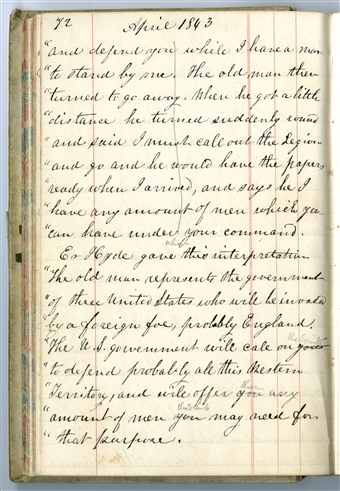 72 April 1843
"and defend you while I have a man
"to stand by me. The old man then
"turned to go away. When he got a little
"distance he turned suddenly round
"and said I must call out the Legion
"and go and he would have the papers
"ready when I arrived, and says he I
"have any amount of men which you
"can have under your command.
Er Hyde gave this interpretation
"The old man represents the government
"of these United States who will be invaded
"by a foreign foe, probably England.
"The U. S. government will call on you
"to defend probably all this Western
"Territory, and will offer you any
"amount of men you may need for
"that purpose.